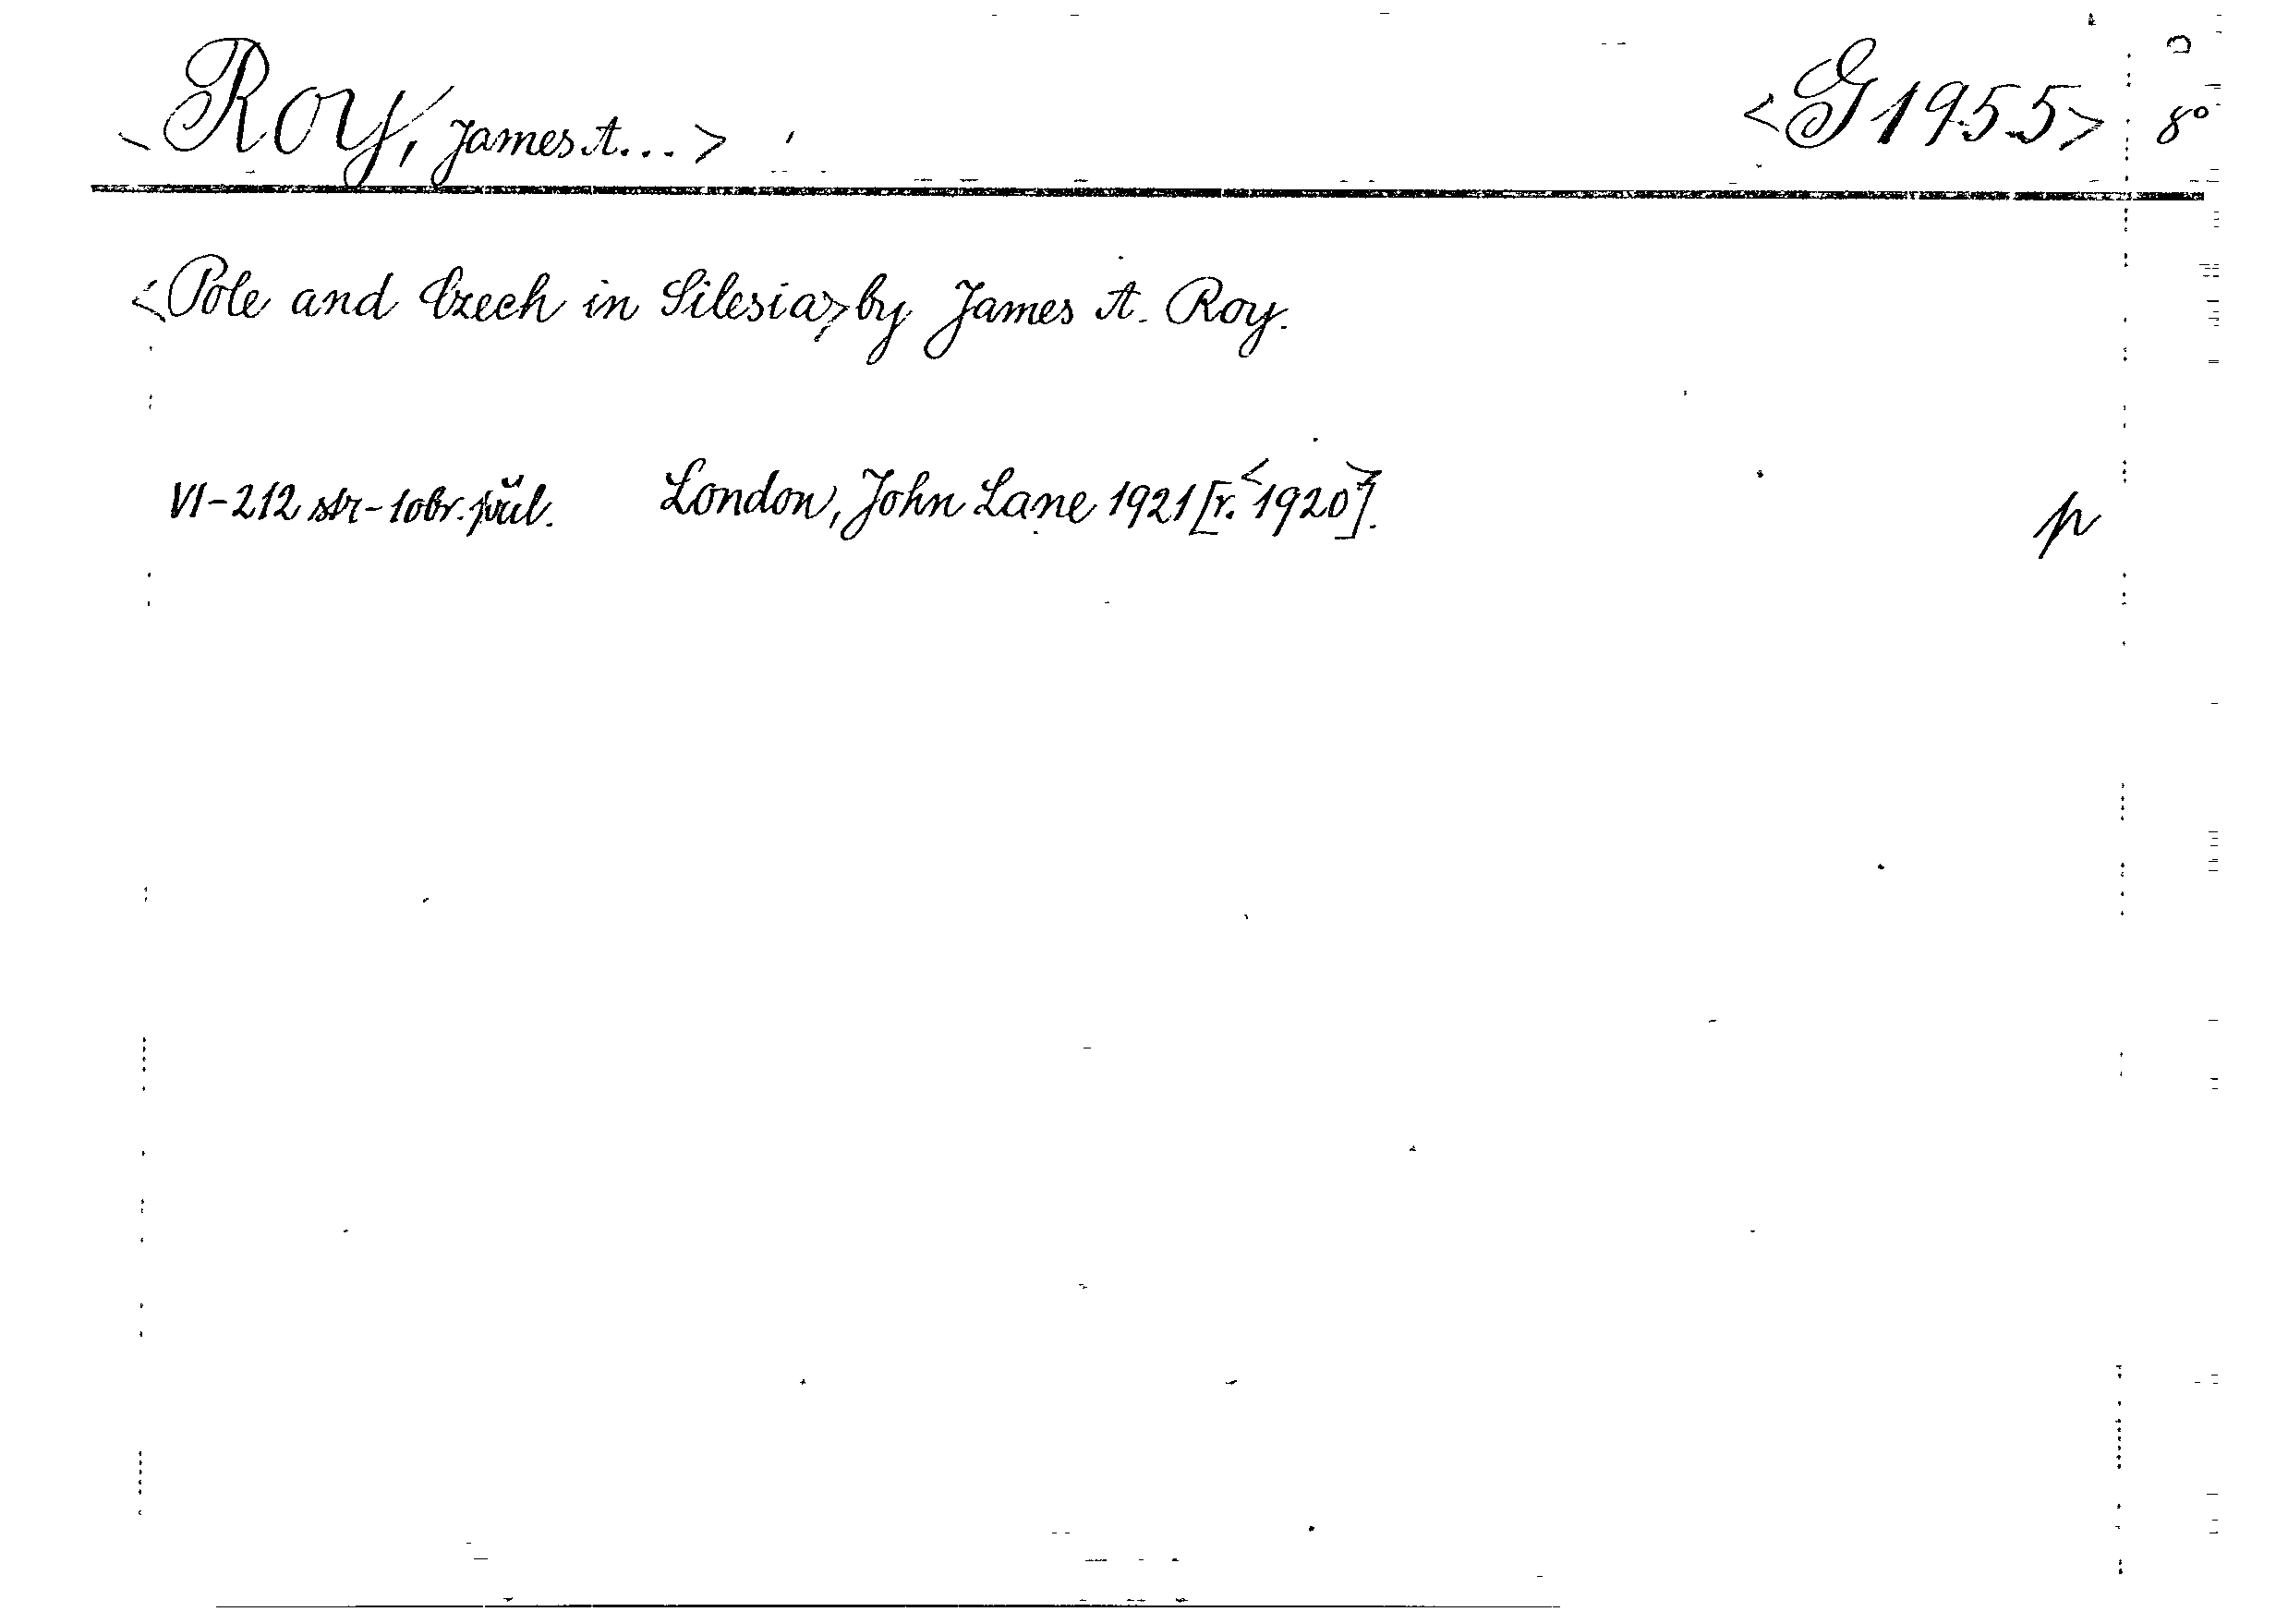 <Roy, James A...> <G 1955> 8°
<Pole and Czech in Silesia> by James A. Roy.
VI-212 str-1obr. příl. London, John Lane 1921 [r. <1920>].
p